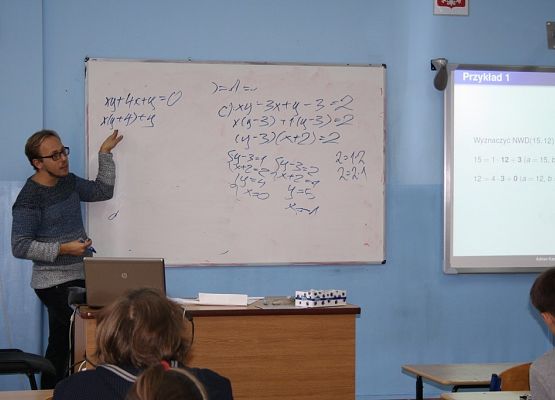 xy+4x+y=0
x(y+4)+y
c) xy-3x+y-3=2
x(y-3)+1(y-3)=2
(y-3)(x+2)=2
y-3=1
x+2=2
y=4
x=0
y-3=2
y=5
2=1·2
2=2·1
Przykład 1
Wyznaczyć NWD(15, 12)
15 = 1 · 12 + 3 (a = 15, b
12 = 4 · 3 + 0 (a = 12, b
hp